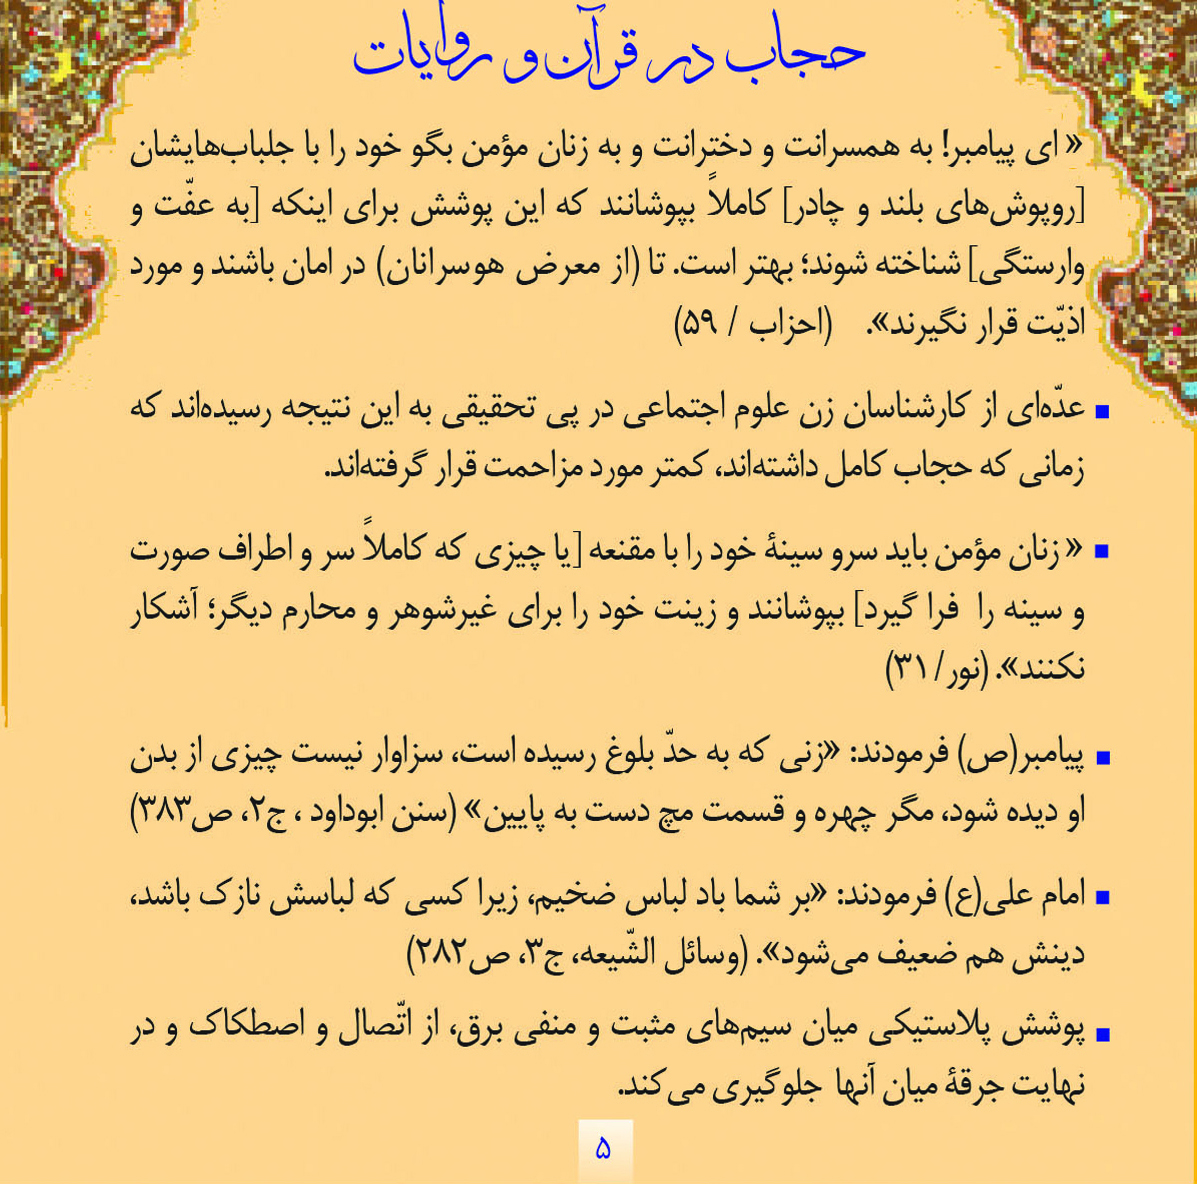 حجاب در قرآن و روایات
« ای پیامبر! به همسرانت و دخترانت و به زنان مؤمن بگو خود را با جلباب‌هایشان
[روپوش‌های بلند و چادر] کاملاً بپوشانند که این پوشش برای اینکه [به عفّت و
وارستگی] شناخته شوند؛ بهتر است. تا (از معرض هوسرانان) در امان باشند و مورد
اذیّت قرار نگیرند». (احزاب / ۵۹)
■ عدّه‌ای از کارشناسان زن علوم اجتماعی در پی تحقیقی به این نتیجه رسیده‌اند که
زمانی که حجاب کامل داشته‌اند، کمتر مورد مزاحمت قرار گرفته‌اند.
■ « زنان مؤمن باید سرو سینهٔ خود را با مقنعه [یا چیزی که کاملاً سر و اطراف صورت
و سینه را فرا گیرد] بپوشانند و زینت خود را برای غیرشوهر و محارم دیگر؛ آشکار
نکنند». (نور/ ۳۱)
■ پیامبر(ص) فرمودند: «زنی که به حدّ بلوغ رسیده است، سزاوار نیست چیزی از بدن
او دیده شود، مگر چهره و قسمت مچ دست به پایین» (سنن ابوداود ، ج۲، ص۳۸۳)
■ امام علی(ع) فرمودند: «بر شما باد لباس ضخیم، زیرا کسی که لباسش نازک باشد،
دینش هم ضعیف می‌شود». (وسائل الشّیعه، ج۳، ص۲۸۲)
■ پوشش پلاستیکی میان سیم‌های مثبت و منفی برق، از اتّصال و اصطکاک و در
نهایت جرقهٔ میان آنها جلوگیری می‌کند.
۵